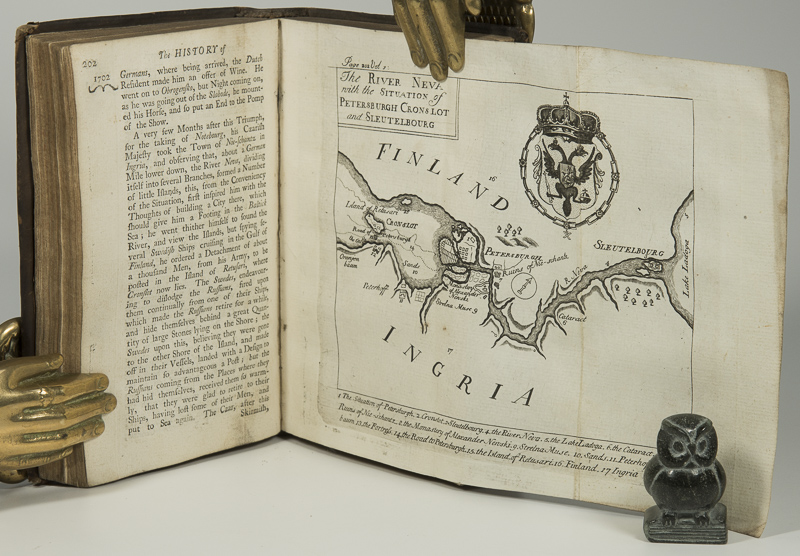 202
The HISTORY of
1702
Germans, where being arrived, the Dutch
Resident made him an offer of Wine. He
went on to Obrogensko, but Night coming on,
as he was going out of the Slaboda, he mount-
ed his Horse, and so put an End to the Pomp
of the Show.
A very few Months after this Triumph,
for the taking of Notebourg, his Czarish
Majesty took the Town of Nie-schantz in
Ingria, and observing that, about a German
Mile lower down, the River Neva, dividing
itself into several Branches, formed a Number
of little Islands, this, from the Conveniency
of the Situation, first inspired him with the
Thoughts of building a City there, which
should give him a Footing in the Baltick
Sea; he went thither himself to sound the
River, and view the Islands, but spying se-
veral Swedish Ships cruising in the Gulf of
Finland, he ordered a Detachment of about
a thousand Men, from his Army, to be
posted in the Island of Retusari, where
Cronslot now lies. The Swedes, endeavour-
ing to dislodge the Russians, fired upon
them continually from one of their Ships,
which made the Russians retire for a while,
and hide themselves behind a great Quan-
tity of large Stones lying on the Shore; the
Swedes upon this, believing they were gone
to the other Shore of the Island, and made
off in their Vessels, landed with a Design to
maintain so advantageous a Post; but the
Russians coming from the Places where they
had hid themselves, received them so warm-
ly, that they were glad to retire to their
Ships, having lost some of their Men, and
put to Sea again. The Czar, after this
Skirmish,
Page 202 Vol 1
The RIVER NEVA
with the SITUATION of
PETERSBURGH CRONSLOT
and SLEUTELBOURG
FINLAND
16
Island of Retusari 15
CRONSLOT
Road of
Petersburgh
14
Sands
10
Oranjen
baum
Peterhoff
PETERSBURGH
Ruins of Nie-shantz
Monastery
of Alexander
Nevski
Strelna Muse 9
R. Neva
4
Cataract
6
SLEUTELBOURG
Lake Ladoga
5
17
INGRIA
1. The Situation of Petersburgh, 2. Cronslot, 3. Sleutelbourg, 4. the River Neva, 5. the Lake Ladoga, 6. the Cataract
Ruins of Nie-schantz, 8. the Monastery of Alexander Nevski, 9. Strelna Muse, 10. Sands, 11. Peterho
baum, 13. the Fortress, 14. the Road to Petersburgh, 15. the Island of Retusari, 16. Finland, 17 Ingria